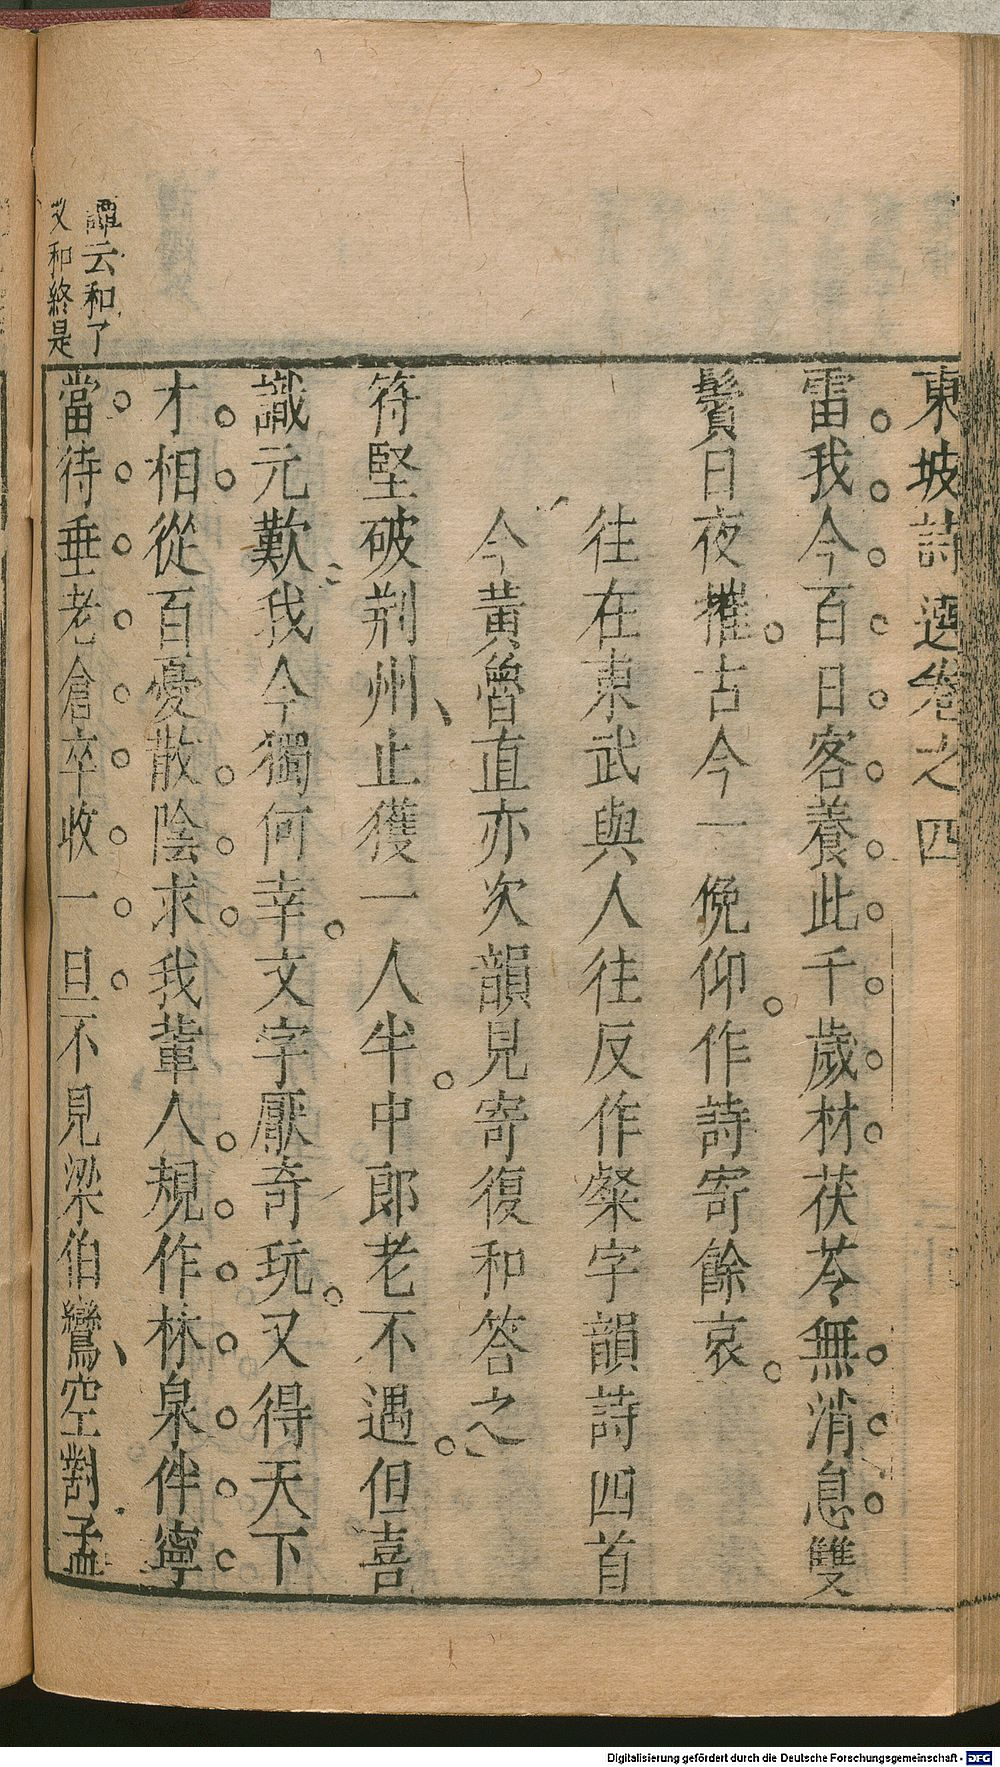 東坡詩選卷之四
雷我今百日客養此千歲材茯苓無消息雙
鬢日夜摧古今一俛仰作詩寄餘哀
往在東武與人往反作粲字韻詩四首
今黃魯直亦次韻見寄復和答之
符堅破荆州止獲一人半中郎老不遇但喜
識元歎我今獨何幸文字厭奇玩又得天下
才相從百憂散陰求我輩人規作林泉伴寧
當待垂老倉卒收一旦不見梁伯鸞空對孟
譚云和了
又和終是
Digitalisierung gefördert durch die Deutsche Forschungsgemeinschaft - DFG